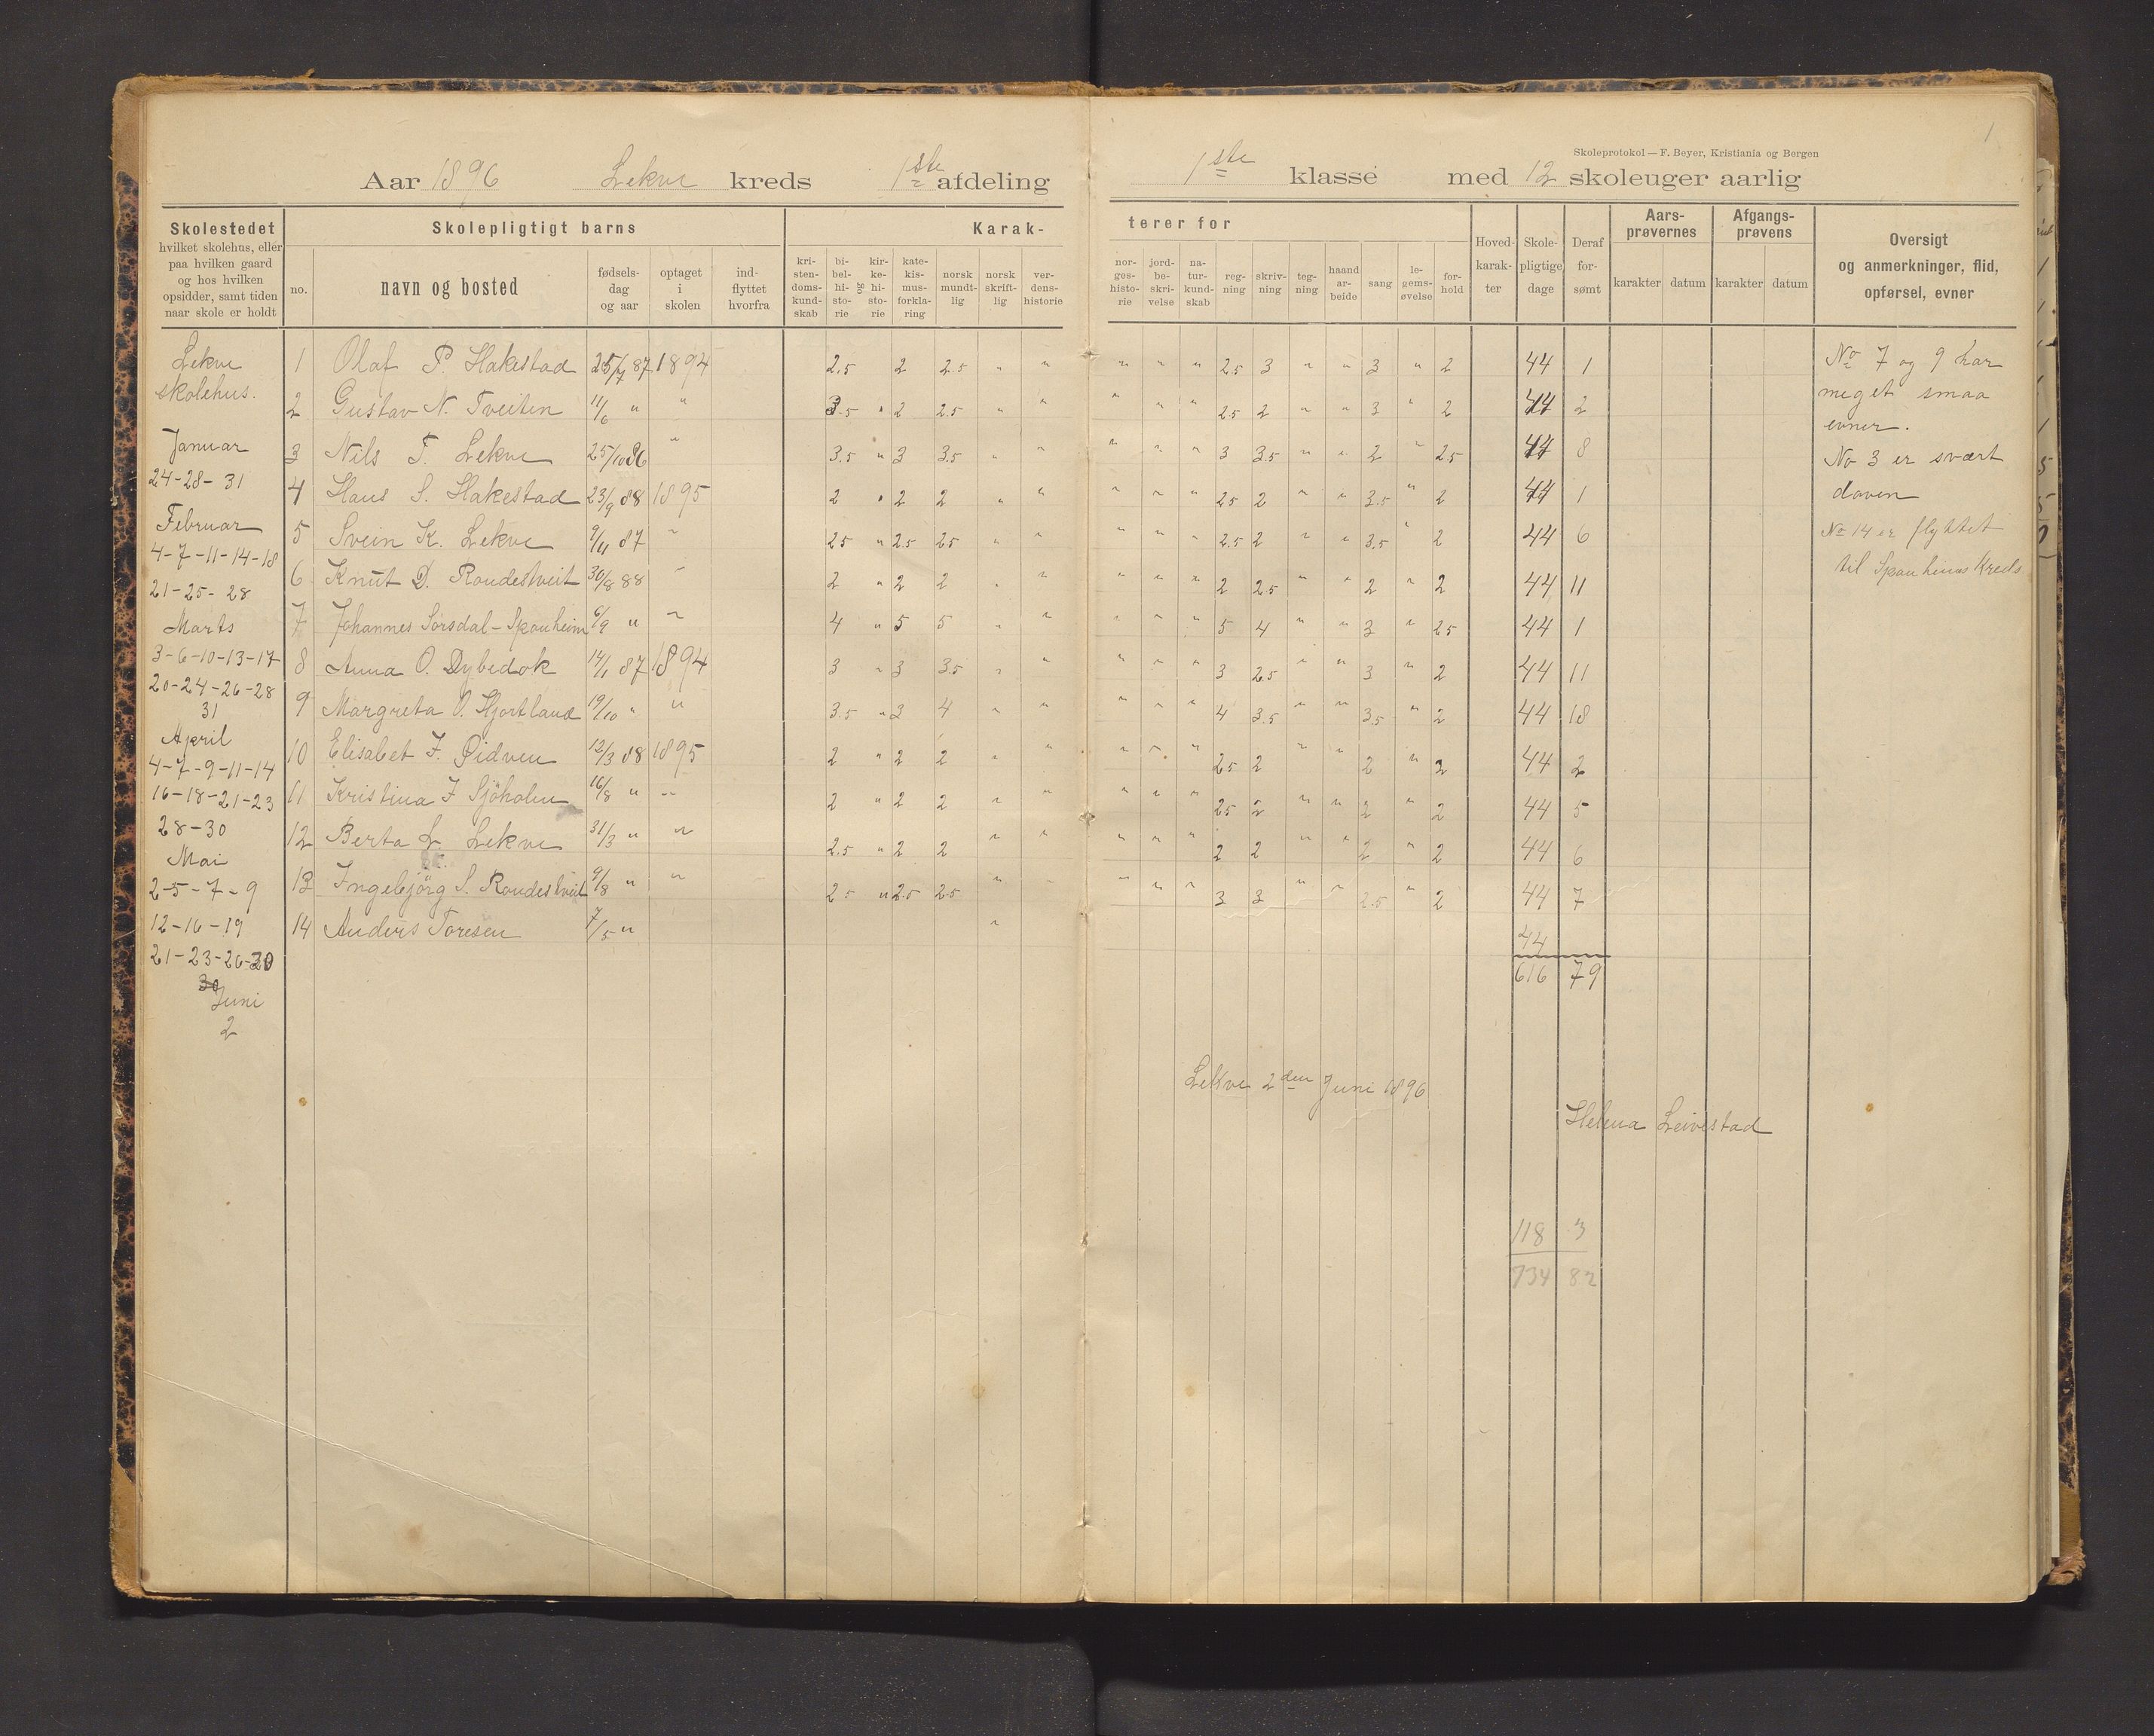 1
Skoleprotokol — F. Beyer, Kristiania og Bergen
Aar 1896 Lekve kreds 1ste afdeling
1ste klasse med 12 skoleuger aarlig
Skolestedet
hvilket skolehus, eller
paa hvilken gaard
og hos hvilken
opsidder, samt tiden
naar skole er holdt
Skolepligtigt barns
no.
navn og bosted
fødsels-
dag
og aar
optaget
i
skolen
ind-
flyttet
hvorfra
Karak-
kri-
sten-
doms-
kund-
skab
bi-
bel-
hi-
sto-
rie
og
kir-
ke-
hi-
sto-
rie
kate-
kis-
mus-
forkla-
ring
norsk
mundt-
lig
norsk
skrift-
lig
ver-
dens-
historie
terer for
nor-
ges-
histo-
rie
jord-
be-
skri-
velse
na-
tur-
kund-
skab
reg-
ning
skriv-
ning
teg-
ning
haand
ar-
beide
sang
le-
gems-
øvelse
for-
hold
Hoved-
karak-
ter
Skole-
pligtige
dage
Deraf
for-
sømt
Aars-
prøvernes
karakter datum
Afgangs-
prøvens
karakter datum
Oversigt
og anmerkninger, flid,
opførsel, evner
Lekve
skolehus.
Januar
24-28-31
Februar
4-7-11-14-18
21-25-28
Marts
3-6-10-13-17
20-24-26-28
31
April
4-7-9-11-14
16-18-21-23
28-30
Mai
2-5-7-9
12-16-19
21-23-26-30
30
Juni
2
1 Olaf P. Hakestad 25/7 87 1894 2.5 2 2.5 " " " " " 2.5 3 " " 3 " 2 44 1
2 Gustav N. Tveiten 11/6 " " 3.5 " 2 2.5 " " " " " 2.5 2 " " 3 " 2 44 2
3 Nils T. Lekve 25/10 86 " 3.5 " 3 3.5 " " " " " 3 3.5 " " 2 " 2.5 44 8
4 Hans S. Hakestad 23/9 88 1895 2 " 2 2 " " " " " 2.5 2 " " 3.5 " 2 44 1
5 Svein K. Lekve 9/11 87 " 2.5 " 2.5 2.5 " " " " " 2.5 2 " " 3.5 " 2 44 6
6 Knut D. Rondestveit 30/8 88 " 2 " 2 2 " " " " " 2 2.5 " " 2 " 2 44 11
7 Johannes Sørsdal-Sponheim 6/9 " " 4 " 5 5 " " " " 5 4 " " 3 " 2.5 44 1
8 Anna O. Dybedok 14/1 87 1894 3 " 3 3.5 " " " " " 3 2.5 " " 3 " 2 44 11
9 Margreta O. Hjortland 19/10 " " 3.5 " 3 4 " " " " " 4 3.5 " " 3.5 " 2 44 18
10 Elisabet J. Øidven 12/3 88 1895 2 " 2 2 " " " " " 2.5 2 " " 2 " 2 44 2
11 Kristina J Sjöholm 16/8 " " 2 " 2 2 " " " " " 2.5 2 " " 2 " 2 44 5
12 Berta L. Lekve 31/3 " " 2.5 " 2 2 " " " " " 2 2 " " 2 " 2 44 6
13 Ingebjörg S. Rondestveit 9/8 " " 2.5 " 2.5 2.5 " " " " " 3 3 " " 2.5 " 2 44 7
14 Anders Toresen 7/5 " " 44
616 79
No 7 og 9 har
meget smaa
evner.
No 3 er svært
doven
No 14 er flyttet
til Sponheims Kreds
Lekve 2den Juni 1896
Helena Leivestad
118 3
734 82